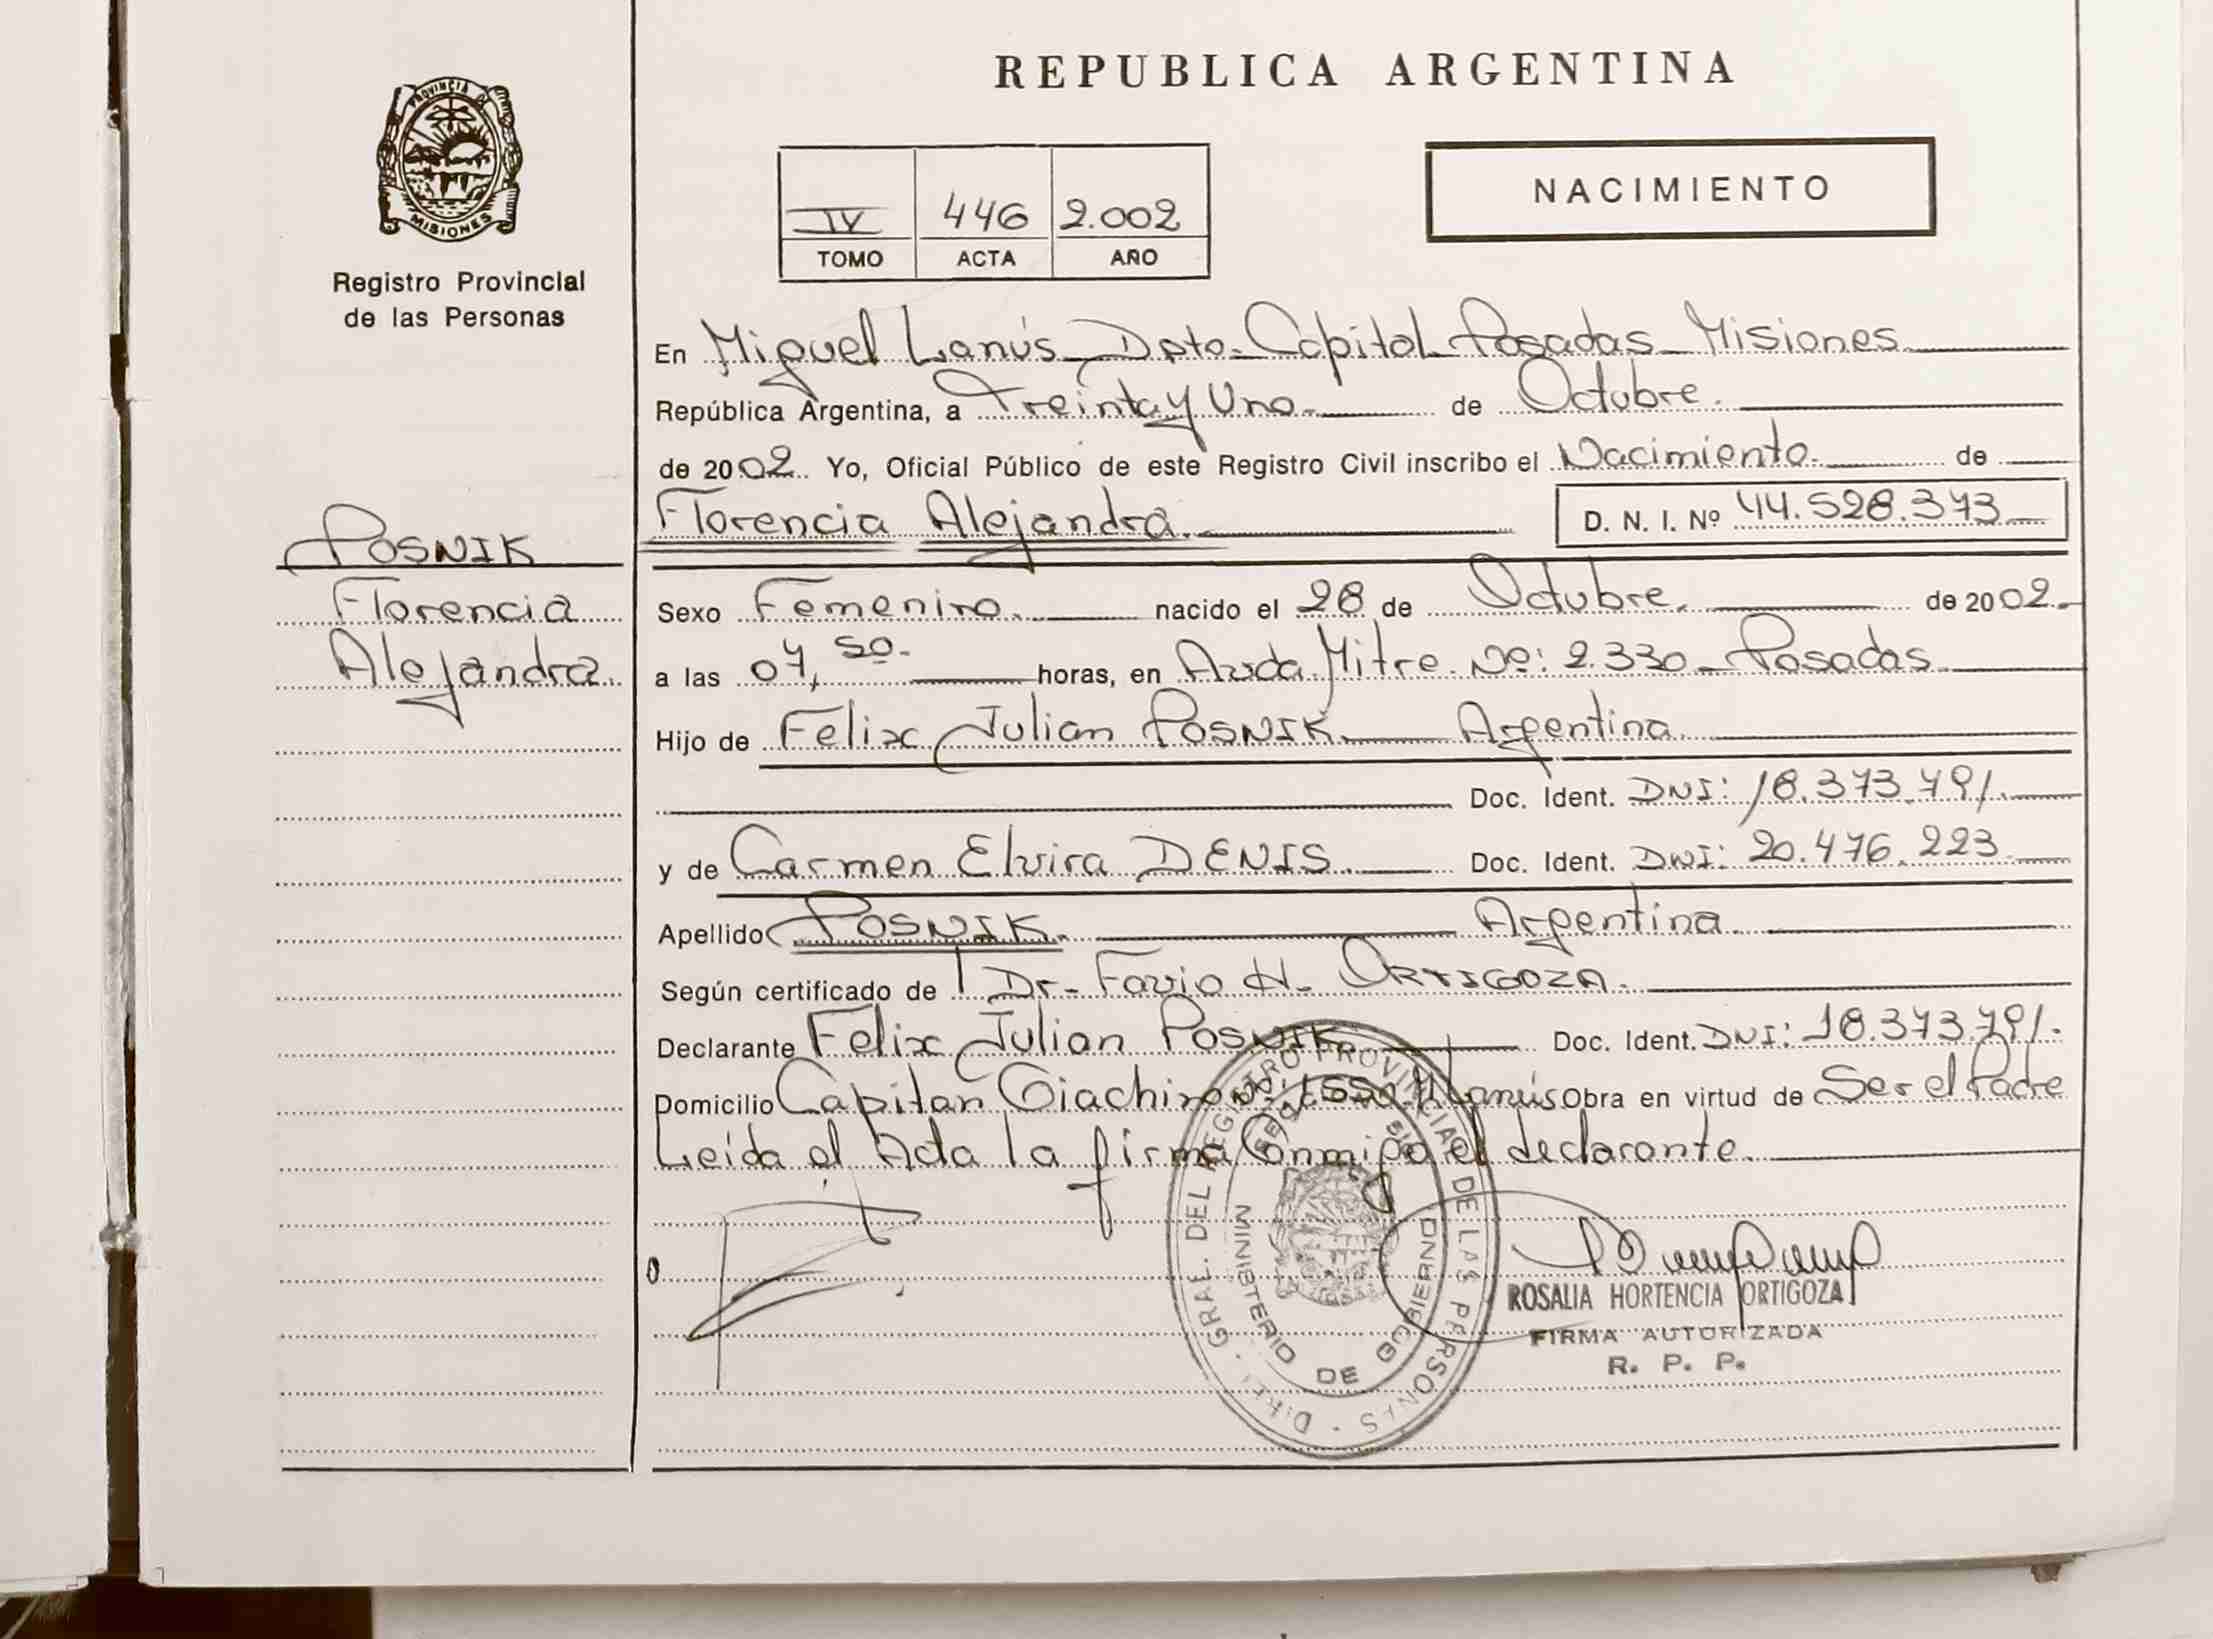 REPUBLICA ARGENTINA
PROVINCIA DE MISIONES
Registro Provincial
de las Personas
IV 446 2.002
TOMO ACTA AÑO
NACIMIENTO
En Miguel Lanús Dpto. Capital Posadas Misiones
República Argentina, a Treinta y Uno. de Octubre.
de 2002. Yo, Oficial Público de este Registro Civil inscribo el Nacimiento. de
Florencia Alejandra. D. N. I. Nº 44.528.373
POSNIK
Florencia
Alejandra.
Sexo Femenino. nacido el 28 de Octubre. de 2002.
a las 07,50. horas, en Avda. Mitre. Nº: 2.330 Posadas.
Hijo de Felix Julian POSNIK. Argentina.
Doc. Ident. DNI: 18.373.791.
y de Carmen Elvira DENIS. Doc. Ident. DNI: 20.476.223
Apellido POSNIK. Argentina.
Según certificado de Dr. Favio H. ORTIGOZA.
Declarante Felix Julian POSNIK. Doc. Ident. DNI: 18.373.791.
Domicilio Capitan Lanús Obra en virtud de Ser el Padre
Leída el Acta la firma Conmigo el declarante.
DIREC. GRAL. DEL REGISTRO PROVINCIAL DE LAS PERSONAS
MINISTERIO DE GOBIERNO
ROSALIA HORTENCIA ORTIGOZA
FIRMA AUTORIZADA
R. P. P.